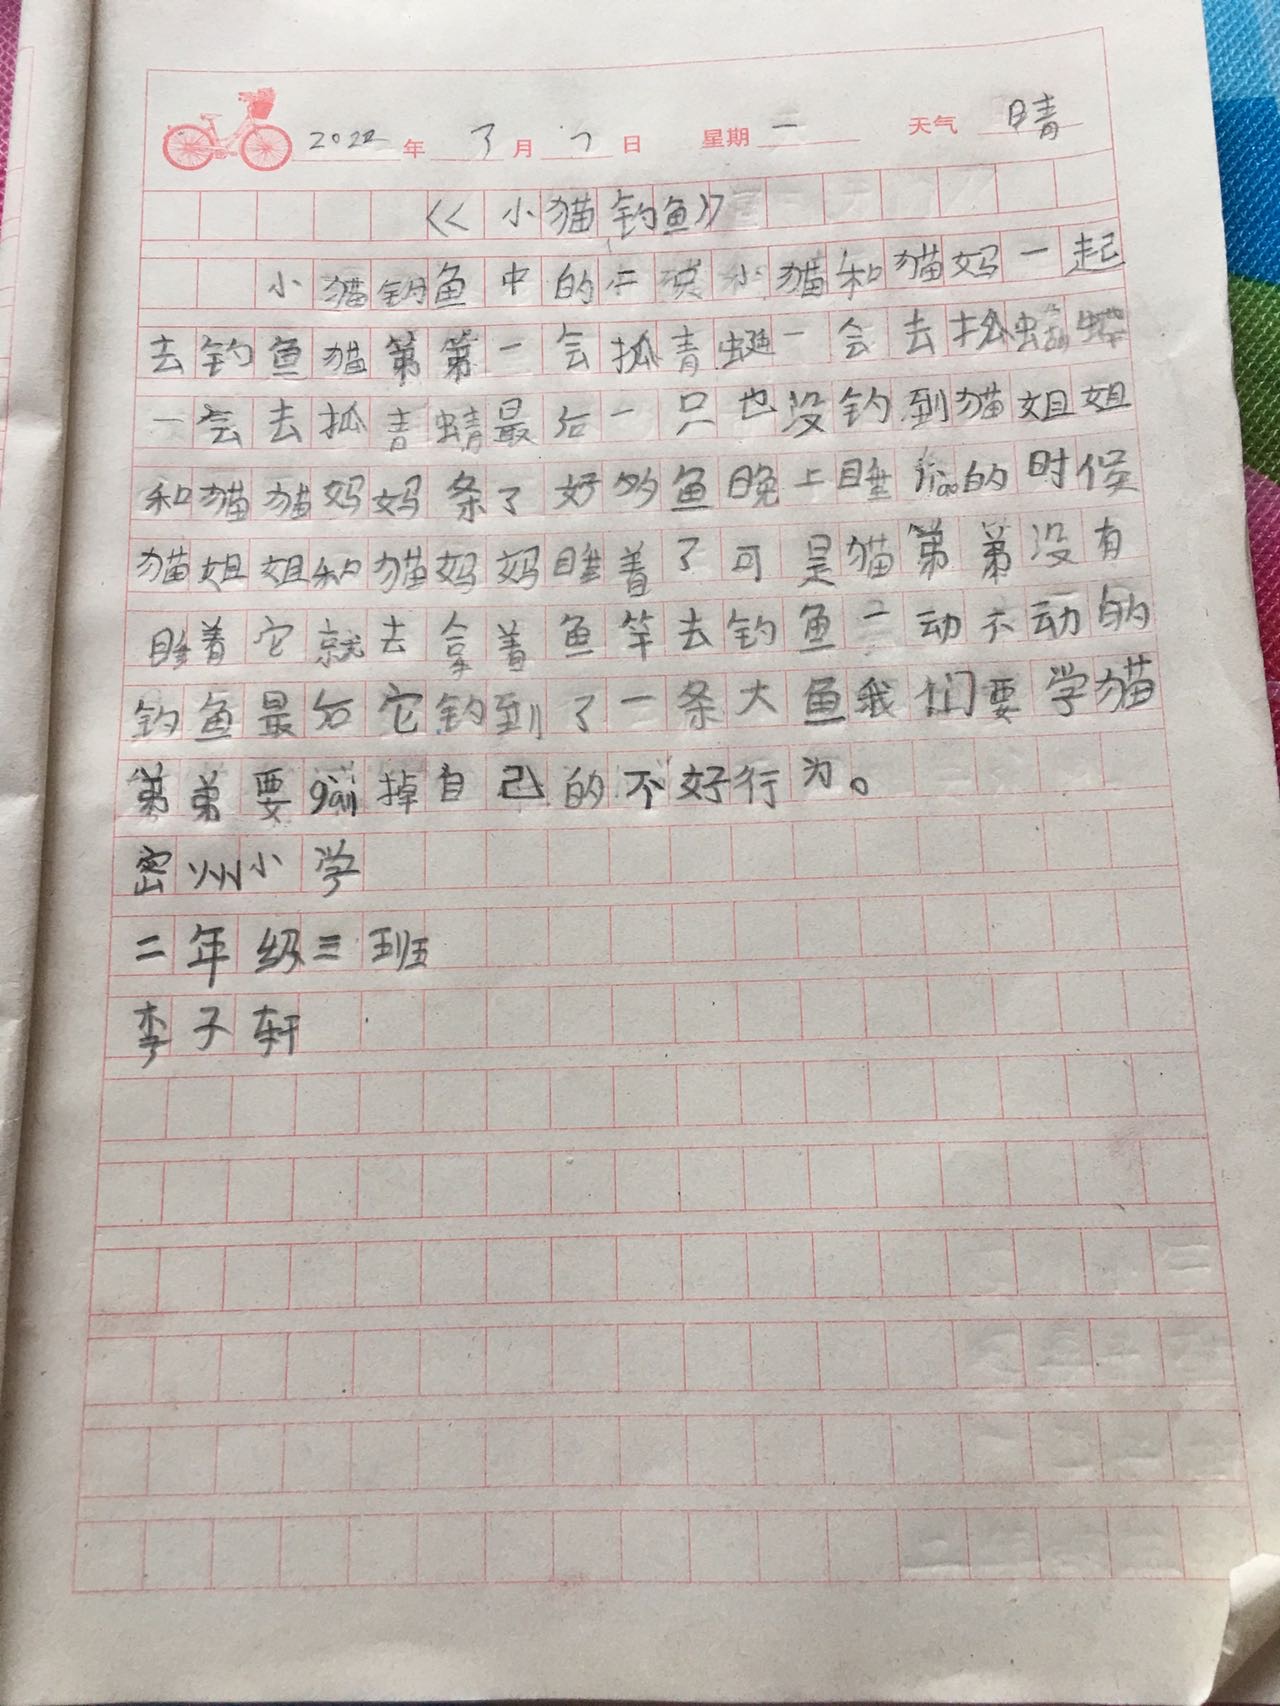 2022年 7月 7日 星期一 天气 晴
《小猫钓鱼》
小猫钓鱼中的 小猫和猫妈一起
去钓鱼猫第第一会抓青蜓一会去抓蝴蝶
一会去抓青蜻最后一只也没钓到猫姐姐
和猫猫妈妈条了好多鱼晚上睡 的时候
猫姐姐和猫妈妈睡着了可是猫第第没有
睡着它就去拿着鱼竿去钓鱼一动不动的
钓鱼最后它钓到了一条大鱼我们要学猫
弟弟要gǎi掉自己的不好行为。
密州小学
二年级三班
李子轩